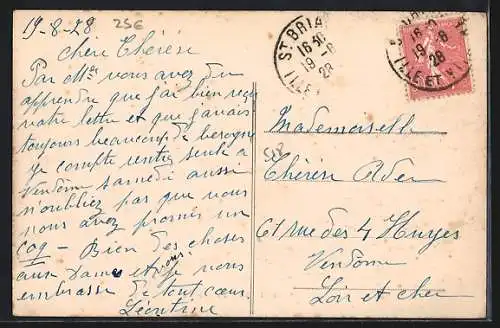 19-8-28 25E
Chère Thérèse
Par Mme vous avez du
apprendre que j'ai bien reçu
votre lettre et que j'avais
toujours beaucoup de besogne
Je compte rentrer seule à
Vendome samedi aussi
n'oubliez pas que vous
vous avez promis un
coq - Bien des choses
aux Dames et je vous
embrasse de tout cœur.
Léontine
ST BRIA
16 30
19 -8
28
ILLE
19 -8
28
ILLE ET VI
Mademoiselle
Thérèse
61 rue des 4 Huyes
Vendome
Loir et cher